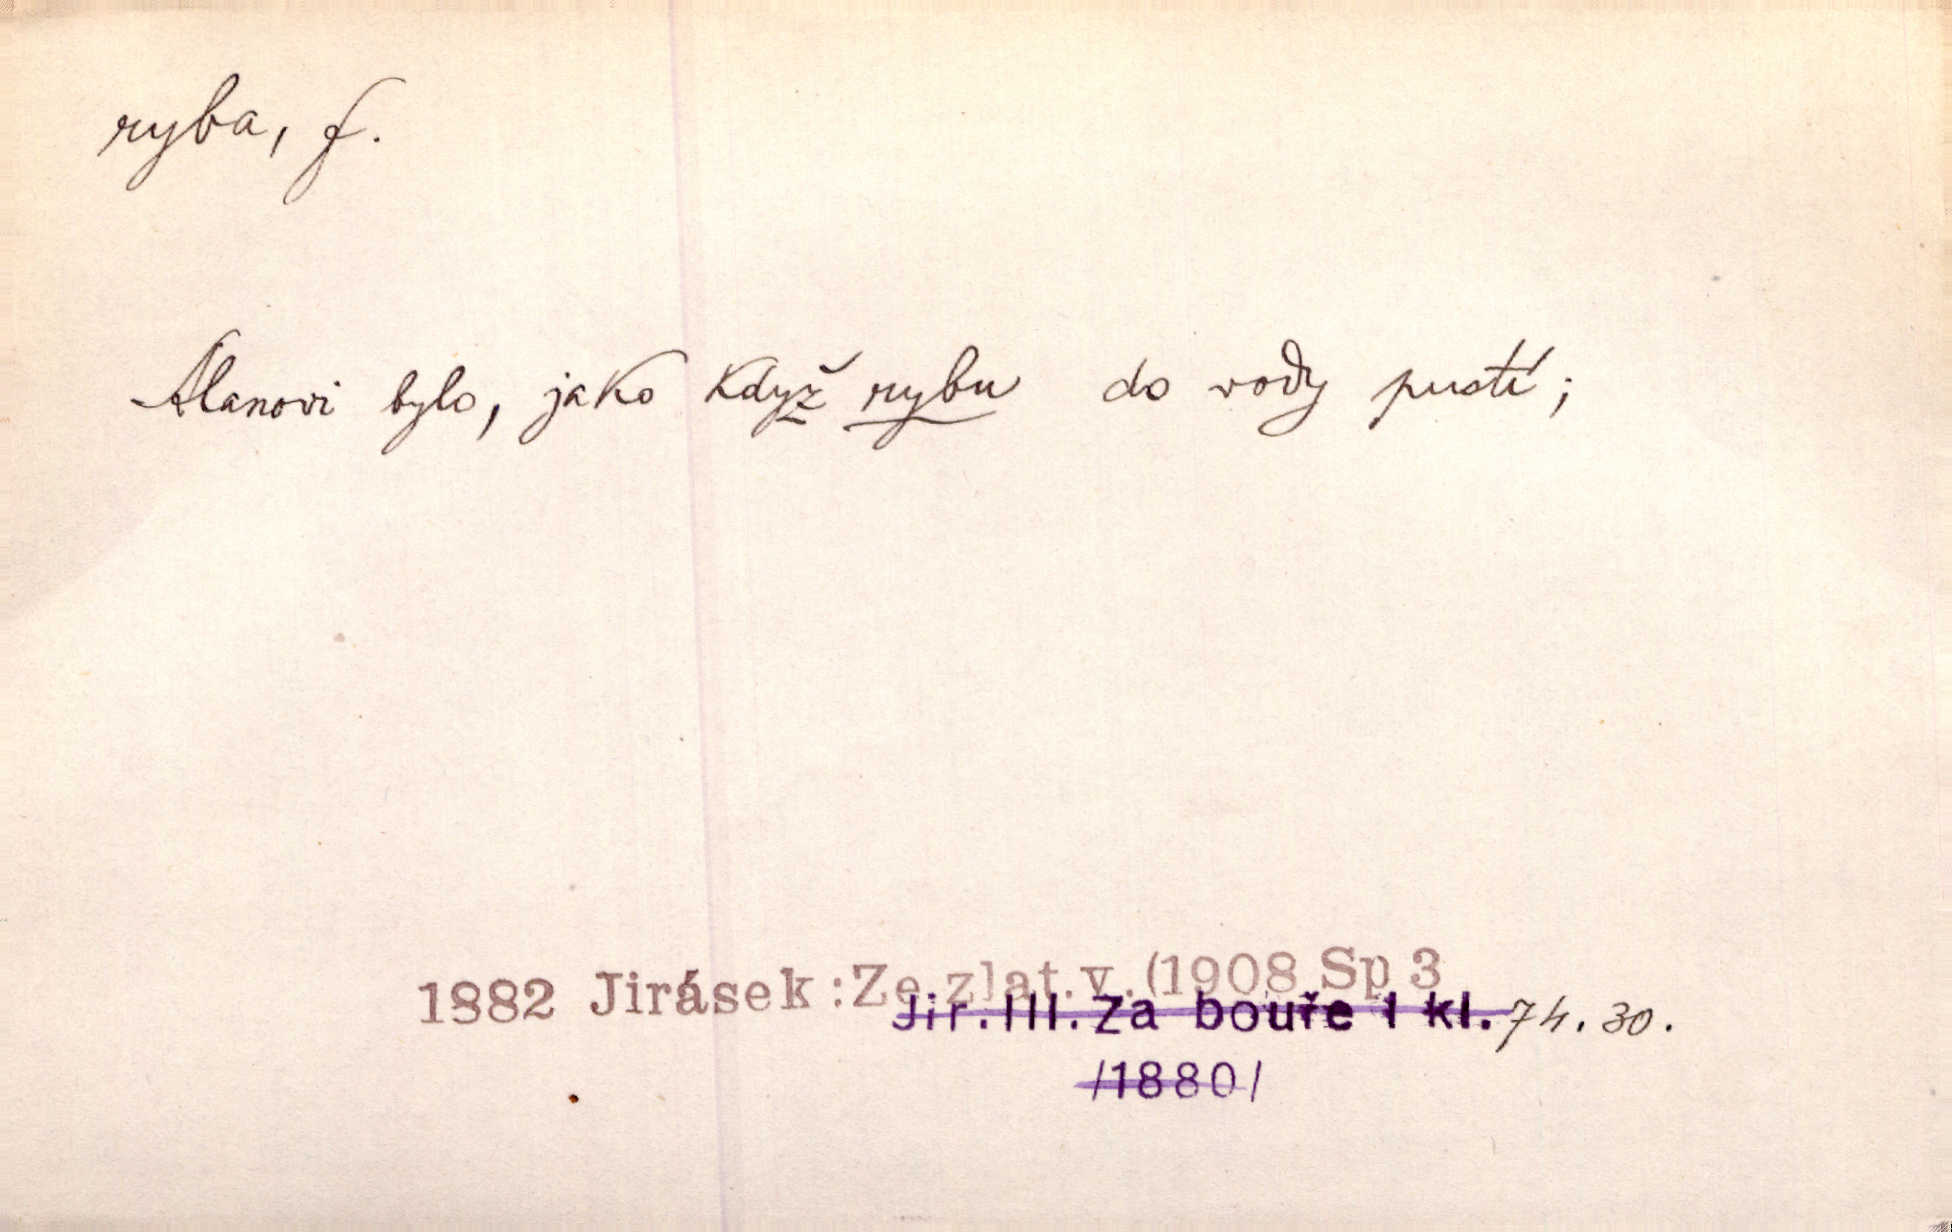 ryba, f.
Alanovi bylo, jako když rybu do vody pustí;
1882 Jirásek:Ze zlat.v.(1908 Sp 3
Jir.III.Za bouře I kl. 74.30.
/1880/